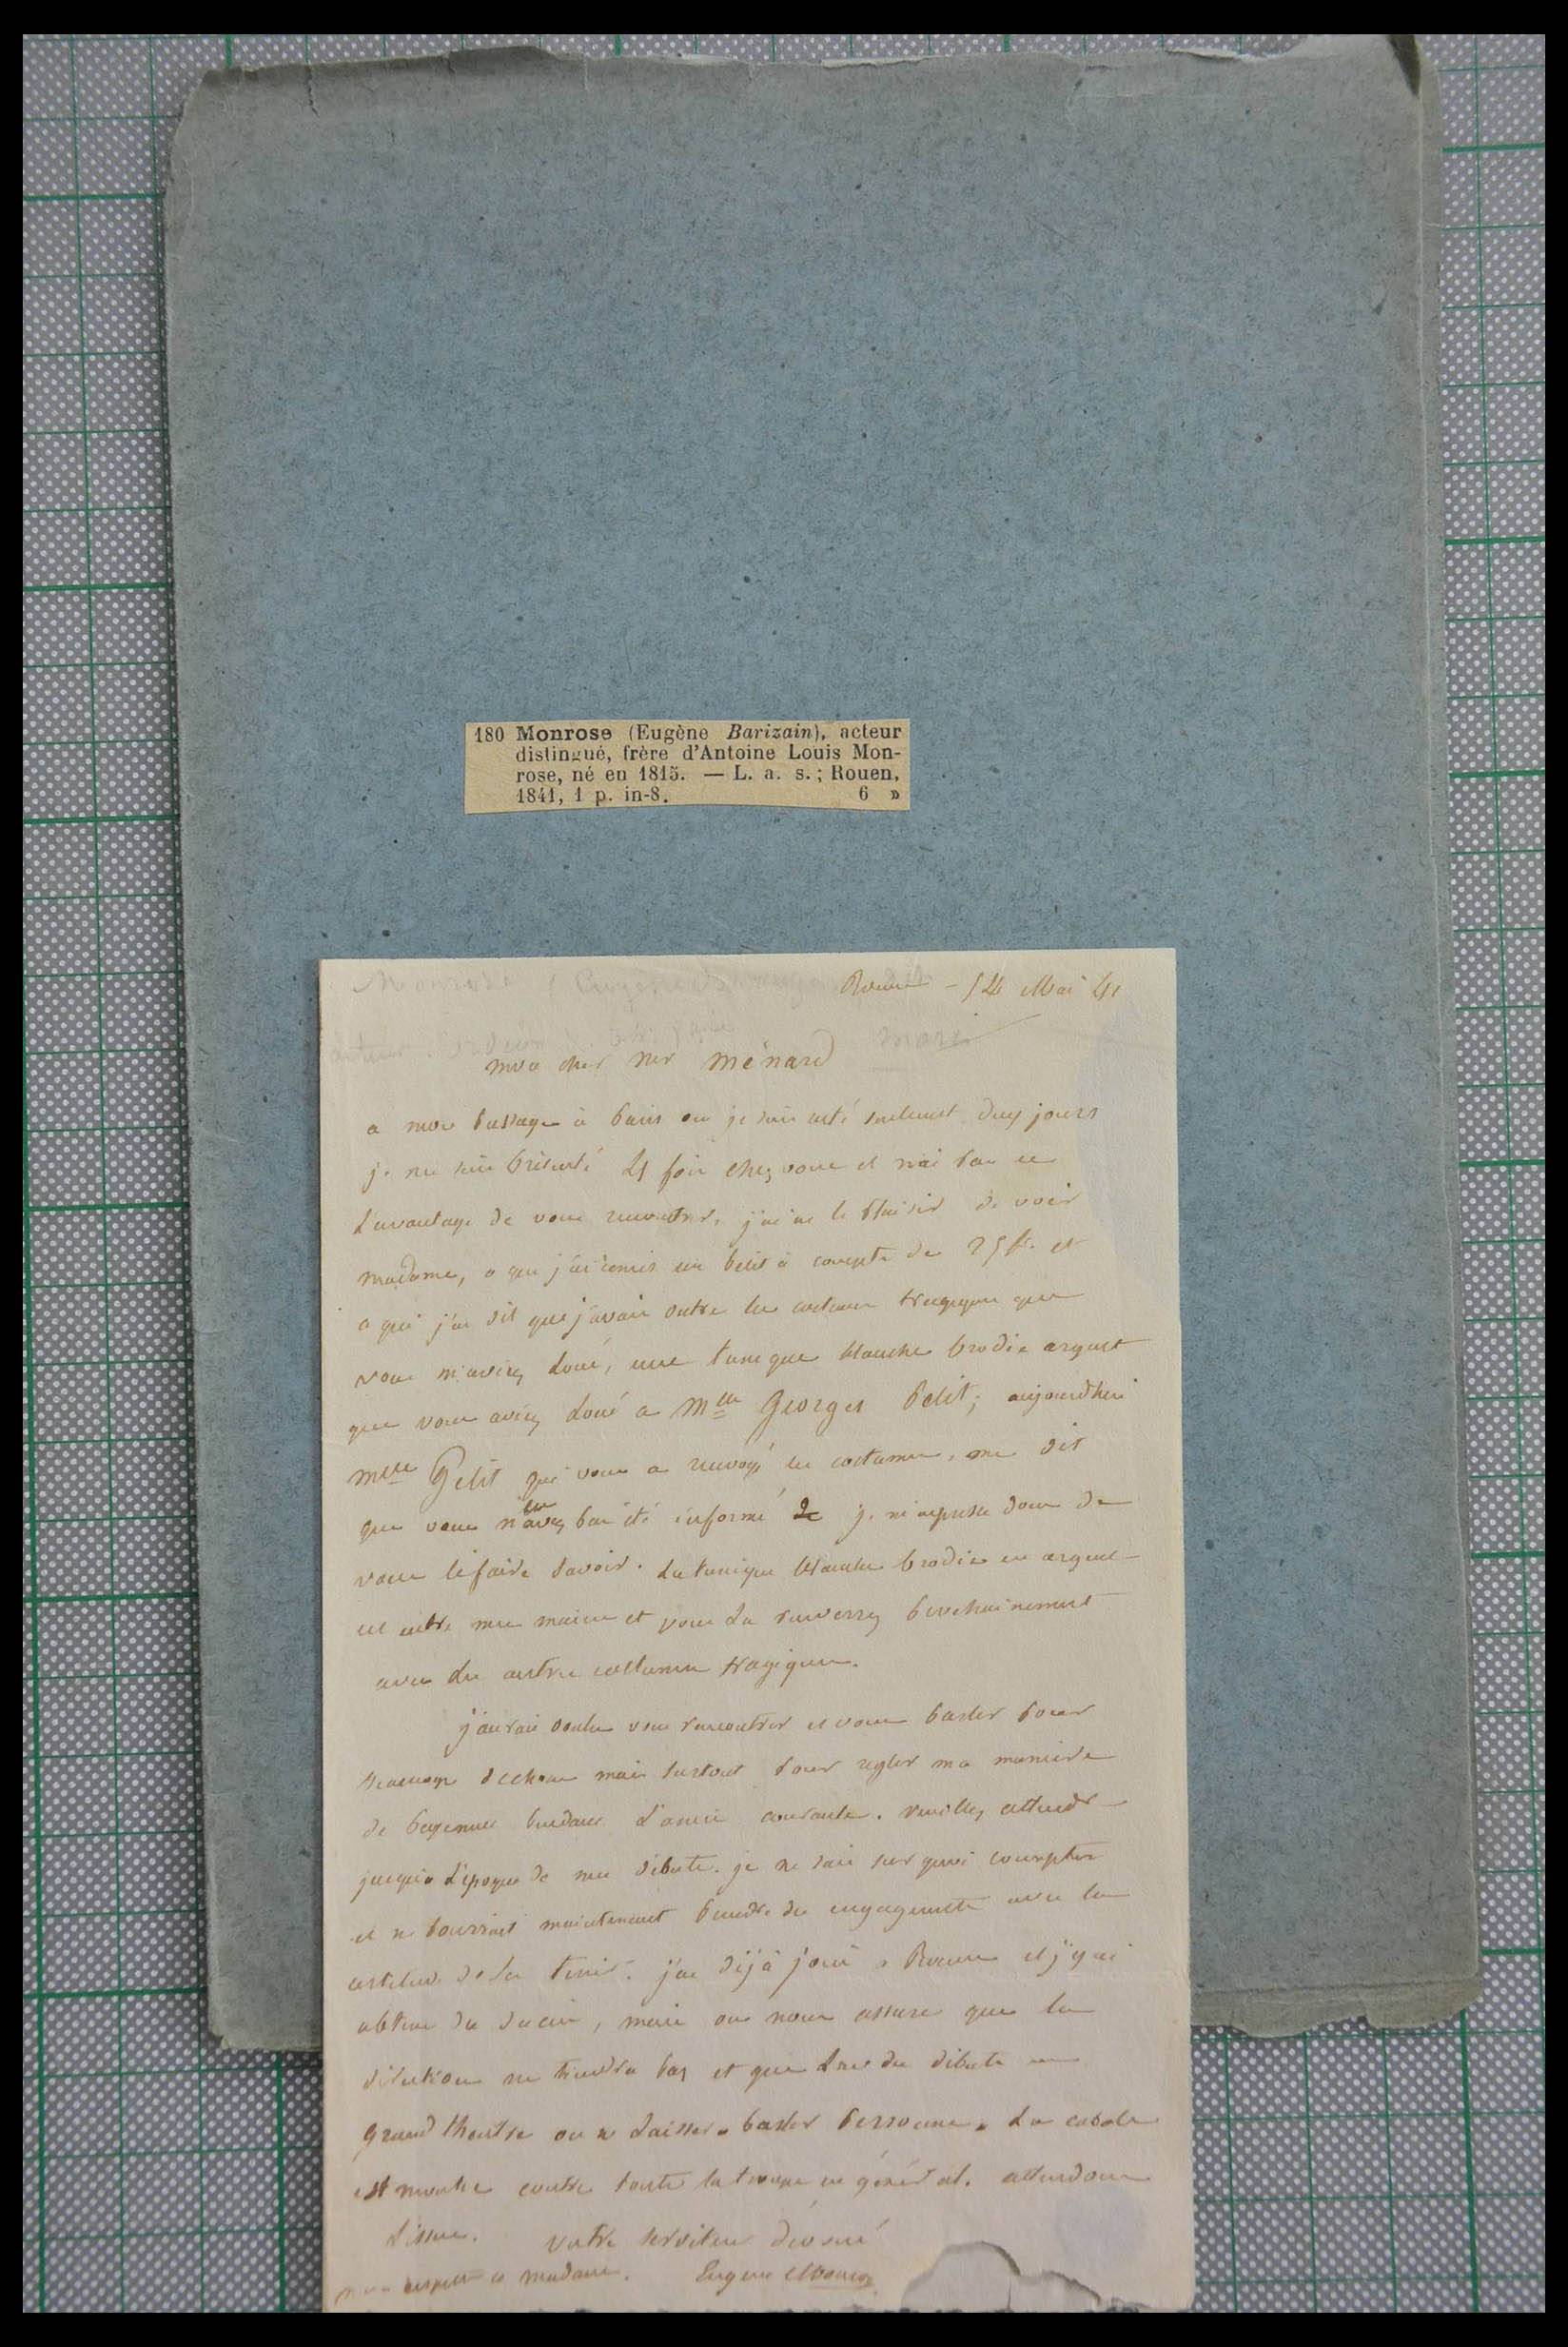 180 Monrose (Eugène Barizain), acteur
distingué, frère d'Antoine Louis Mon-
rose, né en 1815. — L. a. s.; Rouen,
1841, 1 p. in-8. 6 »
Monrose (Eugène
Rouen - 14 Mai 41
mon cher Mr Ménard
a mon passage à Paris ou je suis resté seulement deux jours
je me suis présenté fois chez vous et n'ai pas eu
l'avantage de vous rencontrer, j'ai eu le plaisir de voir
madame, a qui j'ai remis un petit à compte de 25 f. et
a qui j'ai dit que j'avais outre les costumes tragiques que
vous m'aviez loué, une tunique blanche brodée argent
que vous aviez loué a Mlle Georges Petit; aujourd'hui
Mlle Petit qui vous a renvoyé ses costumes, me dit
que vous n'en avez pas été informé je m'empresse donc de
vous le faire savoir. La tunique blanche brodée en argent
est entre mes mains et vous la recevrez prochainement
avec les autres costumes tragiques.
j'aurais voulu vous rencontrer et vous parler pour
beaucoup de choses mais surtout pour regler ma maniere
de payement pendant l'année courante. veuillez attendre
jusqu'a l'époque de mes débuts. je ne sais sur quoi compter
et ne pourrais maintenant prendre des engagements avec la
certitude de les tenir. j'ai déjà joué a Rouen et j'y ai
obtenu du succès, mais on nous assure que la
direction ne tiendra pas et que lors des débuts au
grand theatre on ne laissera parler personne. La cabale
est montée contre toute la troupe en général. attendons
l'issue. votre serviteur dévoué
mes respects a madame. Eugène Monrose